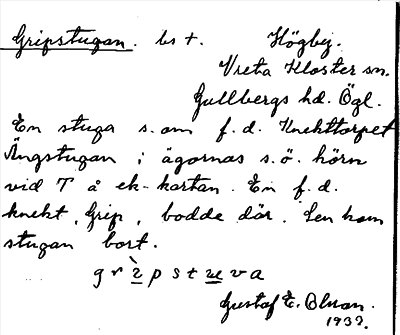 Gripstugan. bs t. Högby.
Vreta Kloster sn.
Gullbergs hd. Ögl.
En stuga s.om f.d. Knekttorpet
Ängstugan i ägornas s.ö. hörn
vid T å ek-kartan. En f.d.
knekt, Grip, bodde där. Sen kom
stugan bort.
g r ì p s t u v a
Gustaf E. Olsson.